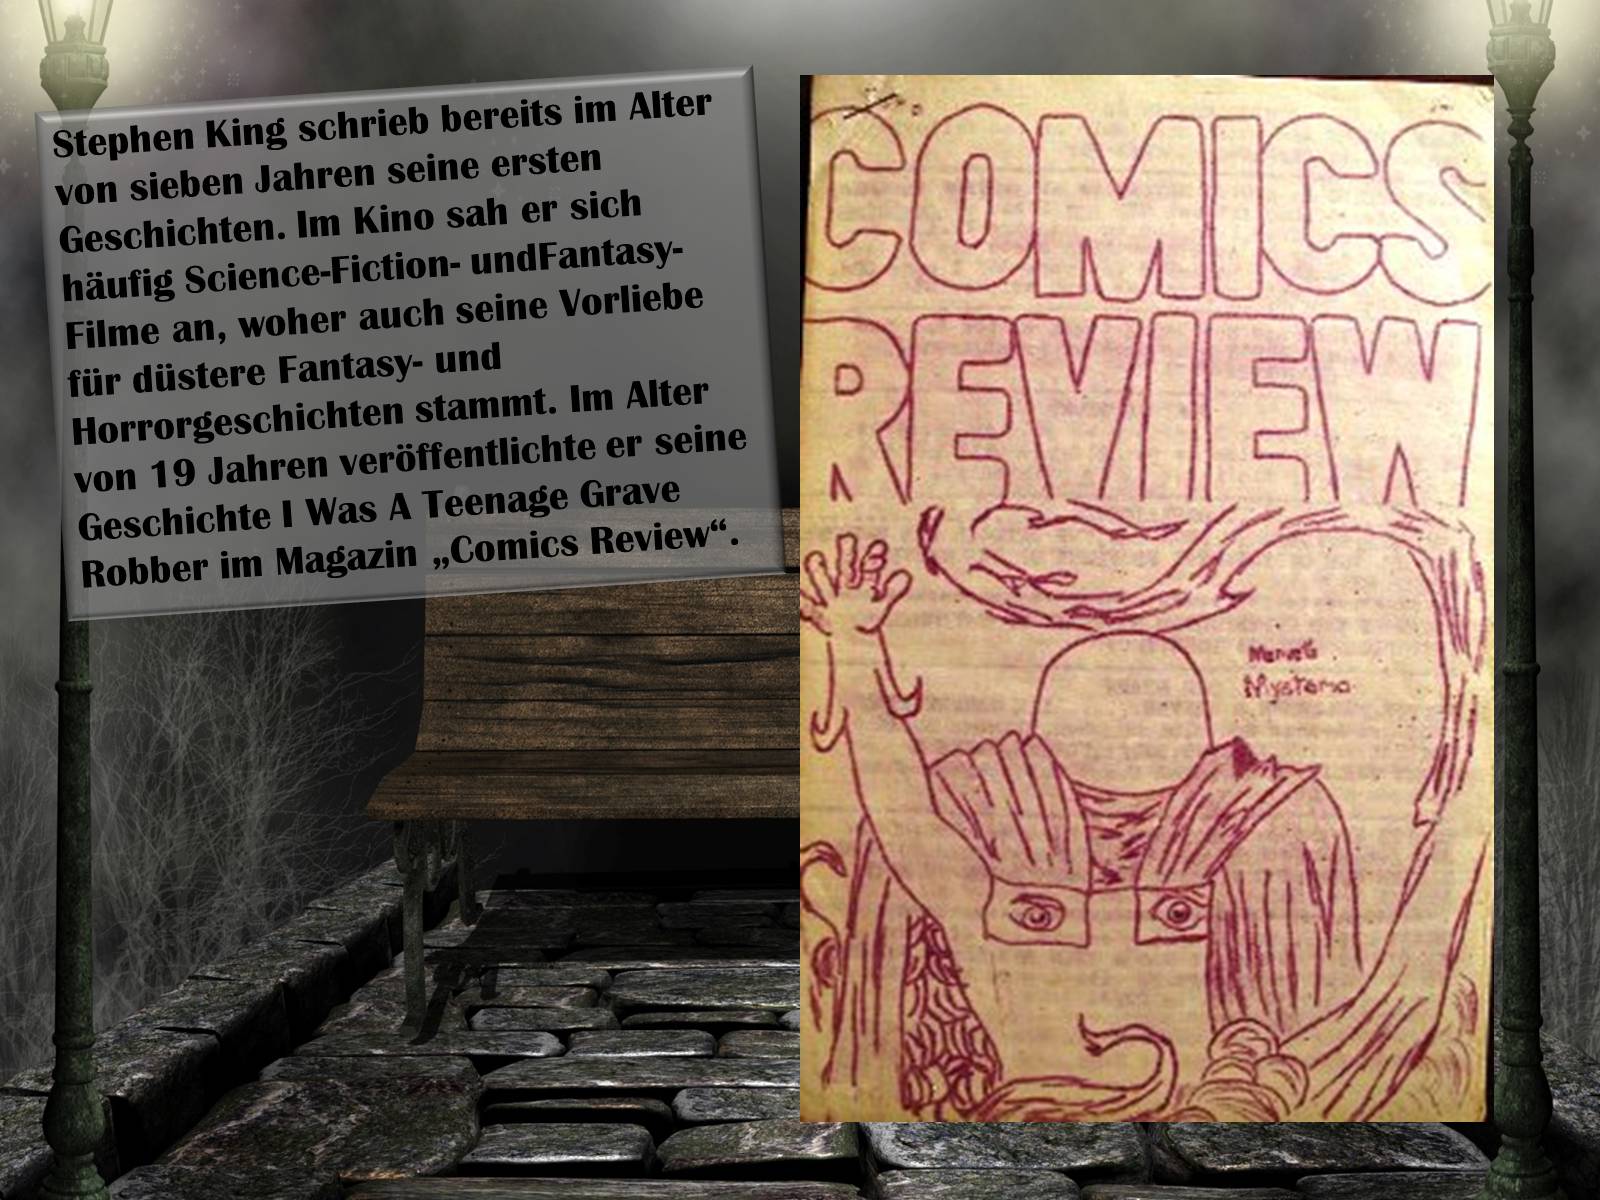 Stephen King schrieb bereits im Alter
von sieben Jahren seine ersten
Geschichten. Im Kino sah er sich
häufig Science-Fiction- undFantasy-
Filme an, woher auch seine Vorliebe
für düstere Fantasy- und
Horrorgeschichten stammt. Im Alter
von 19 Jahren veröffentlichte er seine
Geschichte I Was A Teenage Grave
Robber im Magazin „Comics Review“.
COMICS
REVIEW
Mysterio